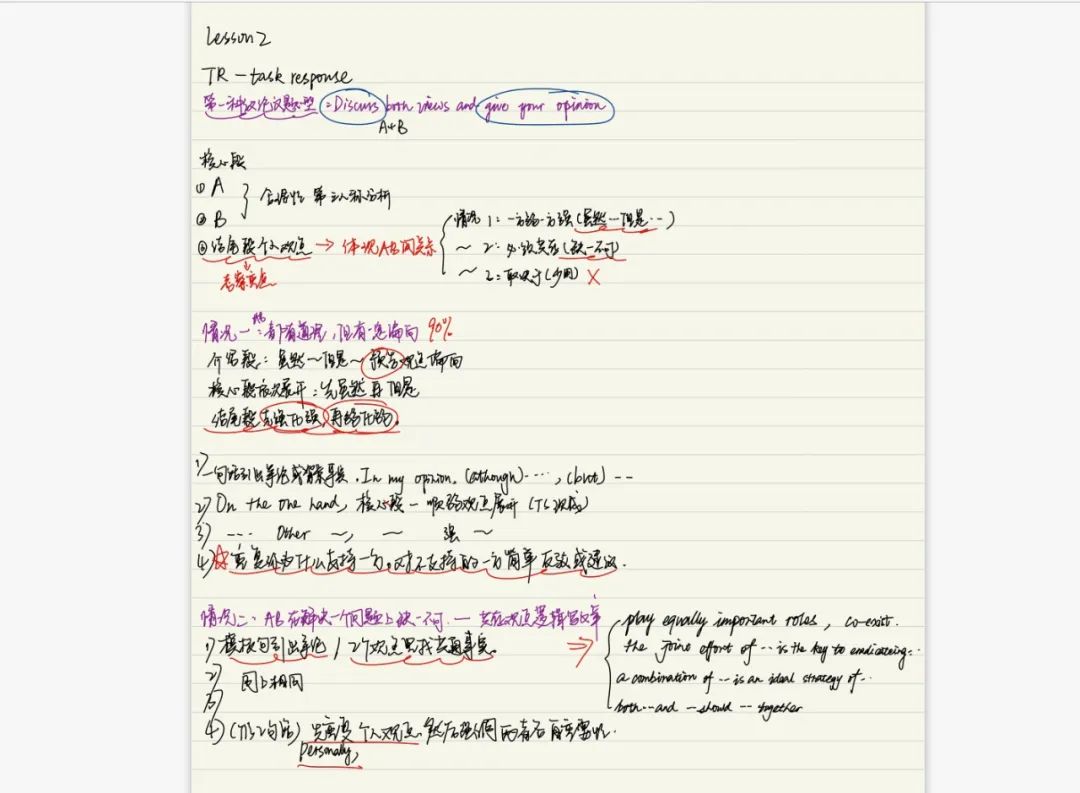 Lesson 2
TR - task response
第一种议论文题型: Discuss both views and give your opinion
A+B
核心段
① A
② B
合理性 第三人称分析
③ 结尾段个人观点 → 体现AB间关系
考察重点
情况1: 一方弱一方强(虽然…但是…)
~ 2: (缺一不可)
~ 3: 取决于(少用) X
情况一: 都有道理,但有一定偏向 90%
介绍段: 虽然~但是~ 预告观点偏向
核心段依次展开: 先虽然再但是
结尾段先强化强,再弱化弱。
1) 一句话引出争论或背景事实. In my opinion, (although)…, (but) --
2) On the one hand, 核心段一 观点展开
3) ---- Other ~, ~ 强 ~
4) ☆ 重复为什么支持一方,对不支持的一方简单反驳或建议.
情况二: AB在解决一个问题上缺一不可.
1) 直接句引出争论 / 2个观点只找共通事实。
2)
3)
同上相同
4) (形2句话) 先重复个人观点, 然后强调两者各自重要性.
Personally,
⇒ play equally important roles, co-exist.
the joine effort of -- is the key to eradicateing..
a combination of -- is an ideal strategy of..
both -- and -- should -- together